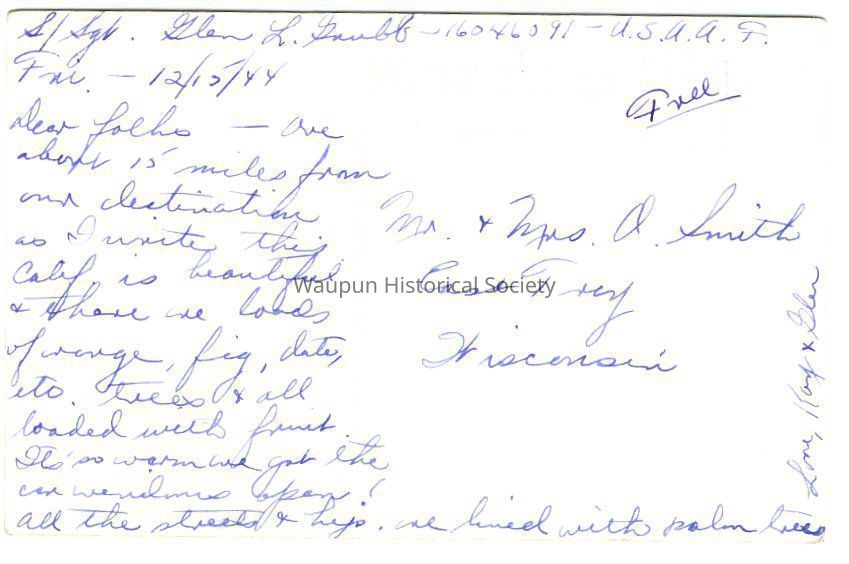 S/Sgt. Glen L. Grubb - 16046091 - U.S.A.A.F.
Fri. - 12/15/44
Free
Dear folks - Are
about 15 miles from
our destination
as I write this
Calif is beautiful
& there are loads
of orange, fig, date,
etc. trees & all
loaded with fruit.
It's so warm we got the
car windows open!
all the streets & are lined with palm trees
Mr. & Mrs. O. Smith
Wisconsin
Love, Kay & Glen
Waupun Historical Society